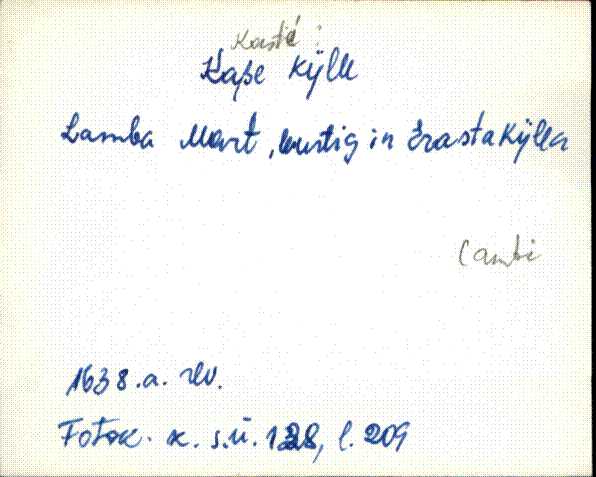 Kastē:
Kaße Kÿlle
Lamba Mart, burtig in Erasta Kÿlla
Cambi
1638. a. rev.
Fotok. k. s.ü. 128, l. 209